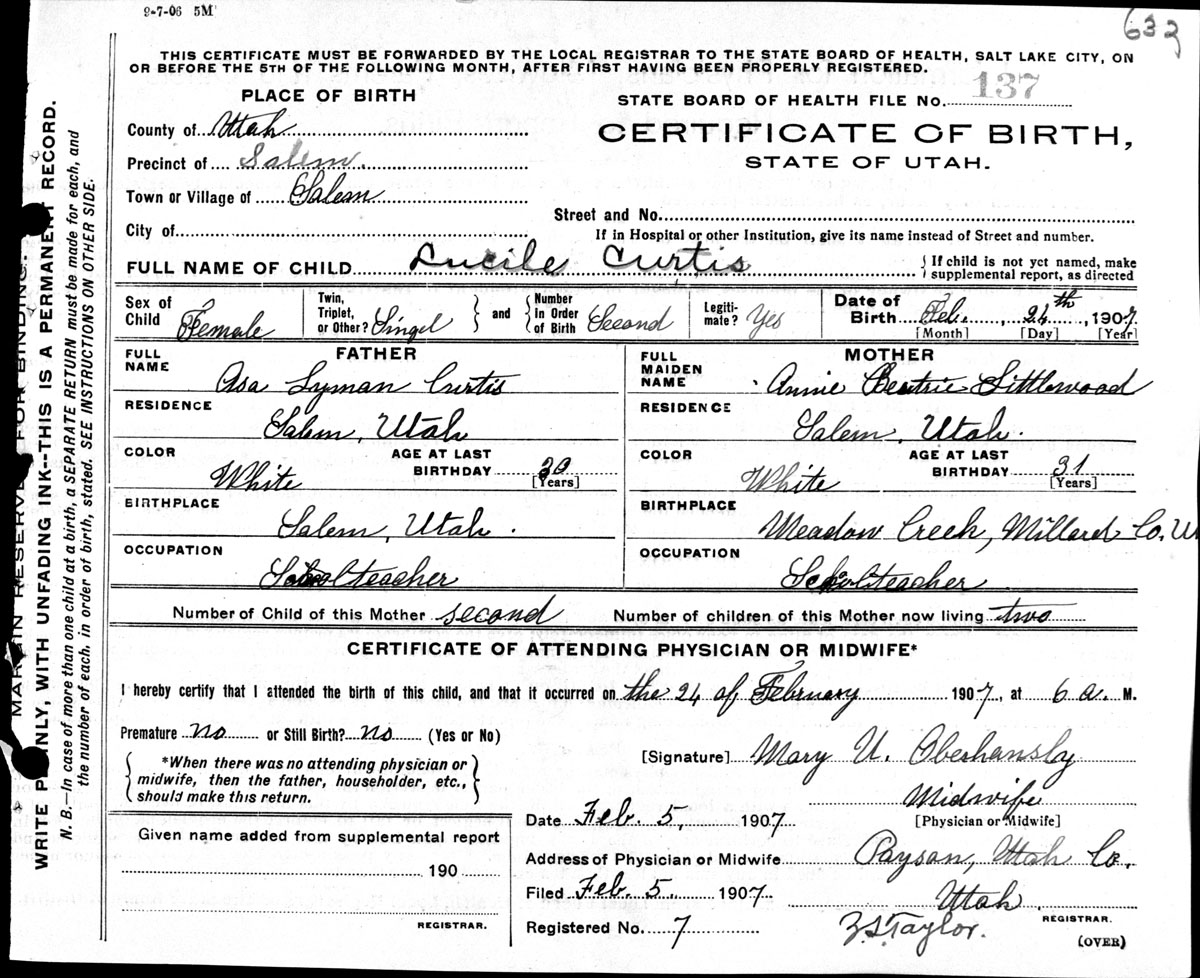 9-7-06 5M
632
THIS CERTIFICATE MUST BE FORWARDED BY THE LOCAL REGISTRAR TO THE STATE BOARD OF HEALTH, SALT LAKE CITY, ON
OR BEFORE THE 5TH OF THE FOLLOWING MONTH, AFTER FIRST HAVING BEEN PROPERLY REGISTERED.
PLACE OF BIRTH
STATE BOARD OF HEALTH FILE NO. 137
County of Utah
CERTIFICATE OF BIRTH,
STATE OF UTAH.
Precinct of Salem.
Town or Village of Salem
Street and No.
City of
If in Hospital or other Institution, give its name instead of Street and number.
FULL NAME OF CHILD Lucile Curtis
{ If child is not yet named, make
supplemental report, as directed
Sex of Child Female
Twin, Triplet, or Other? Singel } and { Number In Order of Birth Second
Legiti-mate? Yes
Date of Birth Feb., 24th, 1907.
[Month] [Day] [Year]
FATHER
FULL NAME
Asa Lyman Curtis
RESIDENCE
Salem, Utah
COLOR
White
AGE AT LAST BIRTHDAY 30
[Years]
BIRTHPLACE
Salem, Utah.
OCCUPATION
Schoolteacher
MOTHER
FULL MAIDEN NAME
Annie Beatrie Littlewood
RESIDENCE
Salem, Utah.
COLOR
White
AGE AT LAST BIRTHDAY 31
[Years]
BIRTHPLACE
Meadow Creek, Millard Co. U
OCCUPATION
Schoolteacher
Number of Child of this Mother second
Number of children of this Mother now living two
CERTIFICATE OF ATTENDING PHYSICIAN OR MIDWIFE*
I hereby certify that I attended the birth of this child, and that it occurred on the 24 of February 1907, at 6 a. M.
Premature no or Still Birth? no (Yes or No)
{ *When there was no attending physician or
midwife, then the father, householder, etc.,
should make this return. }
[Signature] Mary U. Oberhansly
Midwife
[Physician or Midwife]
Date Feb. 5, 1907
Address of Physician or Midwife Payson, Utah Co.
Utah.
Filed Feb. 5 1907
Registered No. 7
Z S Taylor.
REGISTRAR.
(OVER)
Given name added from supplemental report
190
REGISTRAR.
MARGIN RESERVED FOR BINDING.
WRITE PLAINLY, WITH UNFADING INK--THIS IS A PERMANENT RECORD.
N. B.—In case of more than one child at a birth, a SEPARATE RETURN must be made for each, and
the number of each, in order of birth, stated. SEE INSTRUCTIONS ON OTHER SIDE.